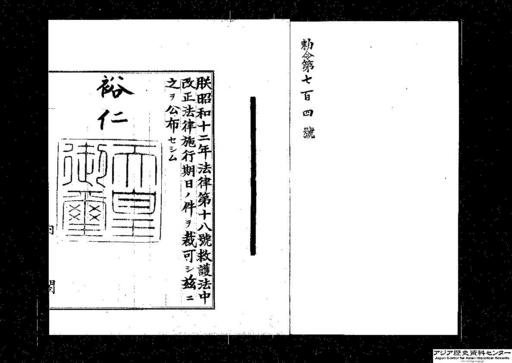 勅令第七百四號
朕昭和十二年法律第十八號救護法中
改正法律施行期日ノ件ヲ裁可シ茲ニ
之ヲ公布セシム
裕仁
天皇
御璽
内閣
アジア歴史資料センター
Japan Center for Asian Historical Records